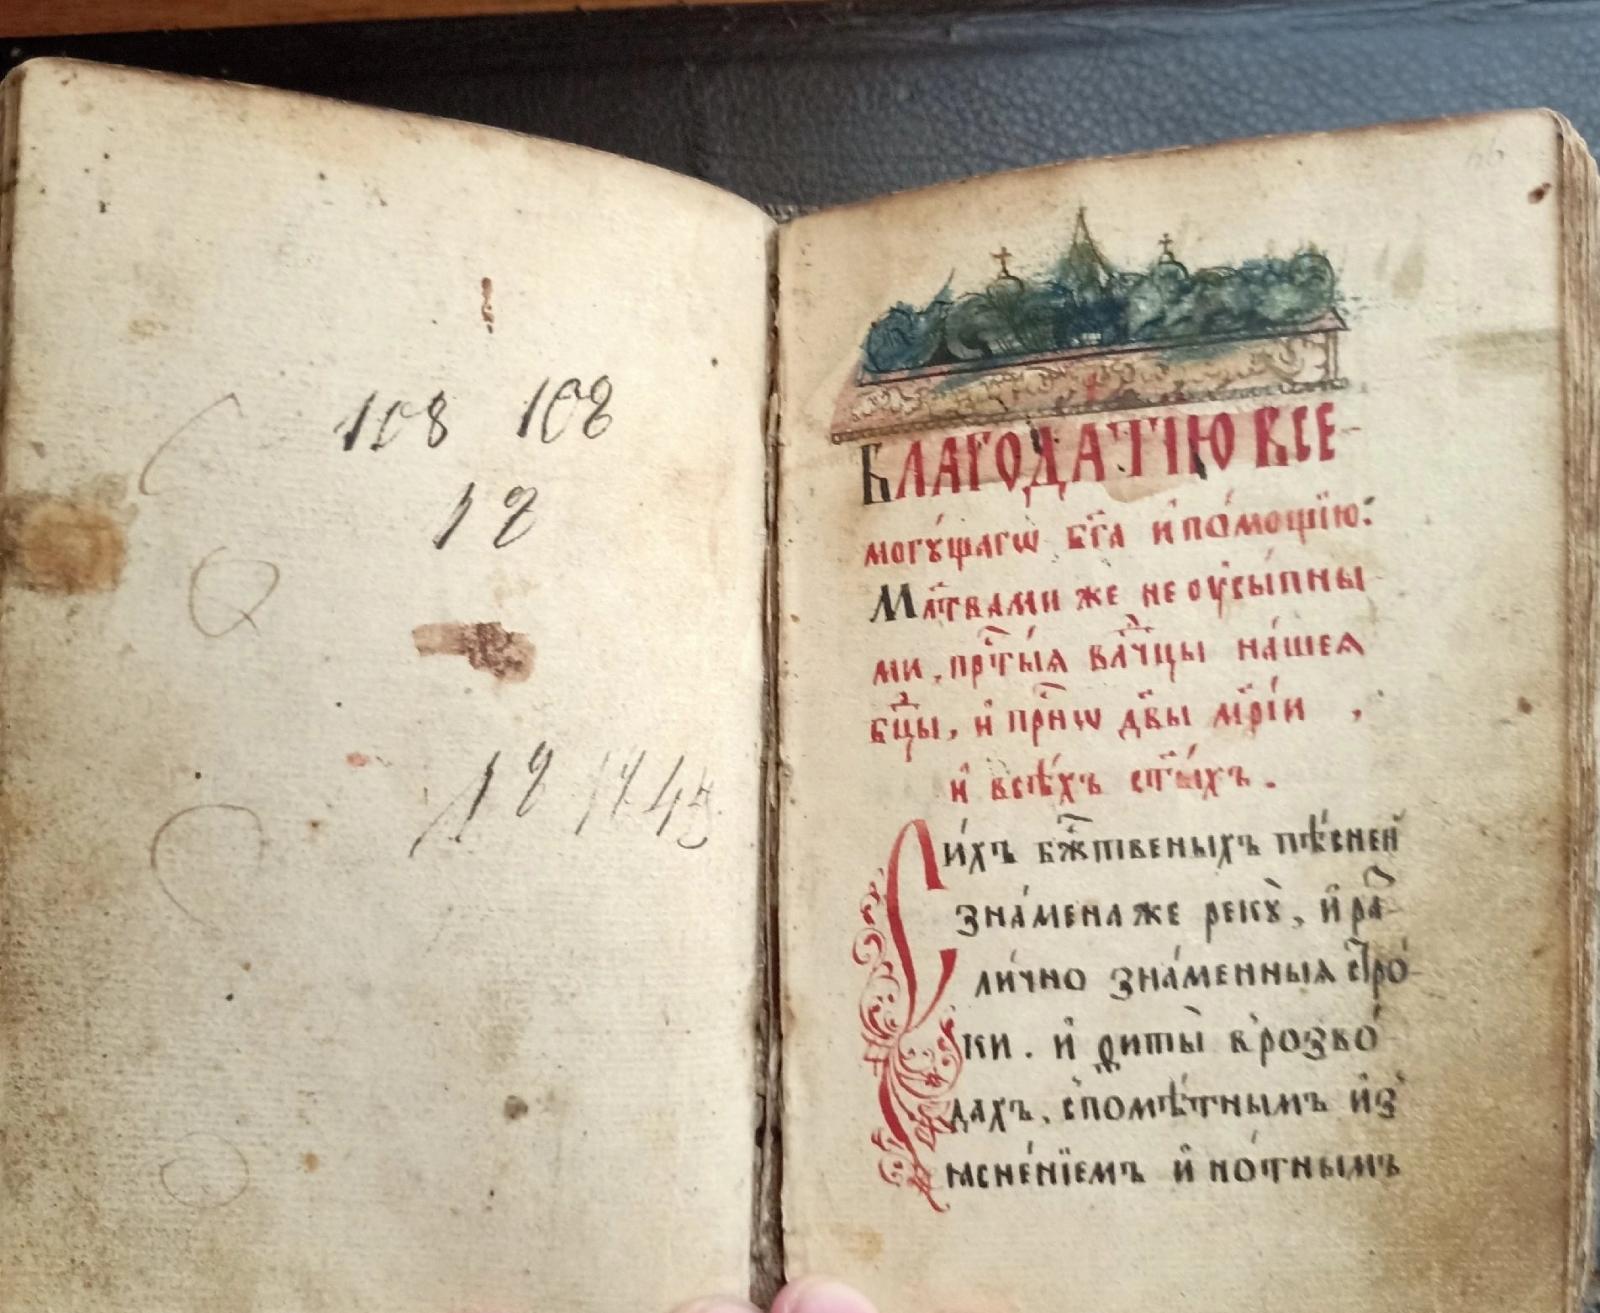 108 108
18
18 1745
66
БЛАГОДАТІЮ ВСЕ-
могꙋ́щагѡ бг҃а и҆ по́мощїю:
Мл҃твами же не оу҆сы́пны
ми, прⷭ҇ты́ѧ влⷣчцы на́шеѧ
бцⷣы, и҆ прⷭ҇нѡ дв҃ы мр҃і́и ,
и҆ всѣ́хъ ст҃ы́хъ.
Си́хъ бж҃твеныхъ пѣ́сней
зна́мена же рекꙋ̀, и҆ раⷥ-
ли́чно зна́менныѧ стро́-
ки. и҆ ѳиты̀ в розво́
дахъ, с помѣ́тнымъ и҆з̾
ꙗсне́нїемъ и҆ но́тнымъ